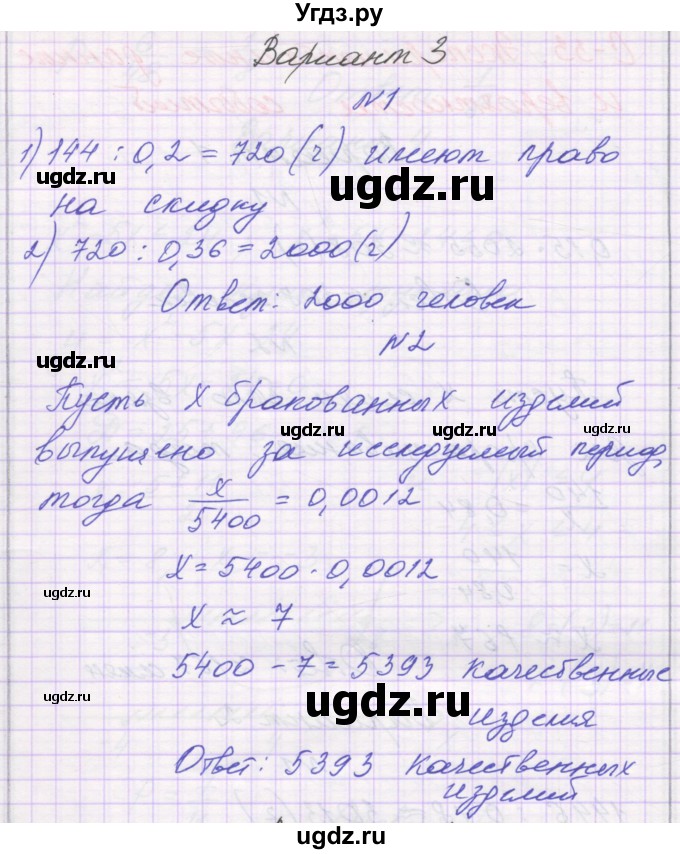 Угдз.ру
Вариант 3
№1
1) 144 : 0,2 = 720 (ч) имеют право
ugdz.ru
ugdz.ru
на скидку
2) 720 : 0,36 = 2000 (ч)
ugdz.ru
Ответ: 2000 человек
№2
ugdz.ru
Пусть x бракованных изделий
ugdz.ru
ugdz.ru
ugdz.ru
выпущено за исследуемый период,
тогда x/5400 = 0,0012
ugdz.ru
x = 5400 · 0,0012
ugdz.ru
ugdz.ru
x ≈ 7
5400 - 7 = 5393 качественные
ugdz.ru
ugdz.ru
изделия
Ответ: 5393 качественных
ugdz.ru
изделий
ugdz.ru